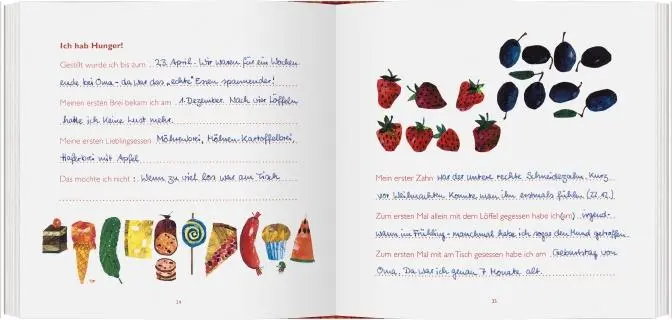 Ich hab Hunger!
Gestillt wurde ich bis zum 23. April. Wir waren für ein Wochen
ende bei Oma - da war das "echte" Essen spannender!
Meinen ersten Brei bekam ich am 1. Dezember. Nach vier Löffeln
hatte ich keine Lust mehr.
Meine ersten Lieblingsessen Möhrenbrei, Möhren-Kartoffelbrei,
Haferbrei mit Apfel
Das mochte ich nicht: Wenn zu viel los war am Tisch
34
Mein erster Zahn war der untere rechte Schneidezahn. Kurz
vor Weihnachten konnte man ihn erstmals fühlen (22.12.)
Zum ersten Mal allein mit dem Löffel gegessen habe ich (am) irgend-
wann im Frühling - manchmal habe ich sogar den Mund getroffen.
Zum ersten Mal mit am Tisch gesessen habe ich am Geburtstag von
Oma. Da war ich genau 7 Monate alt.
35